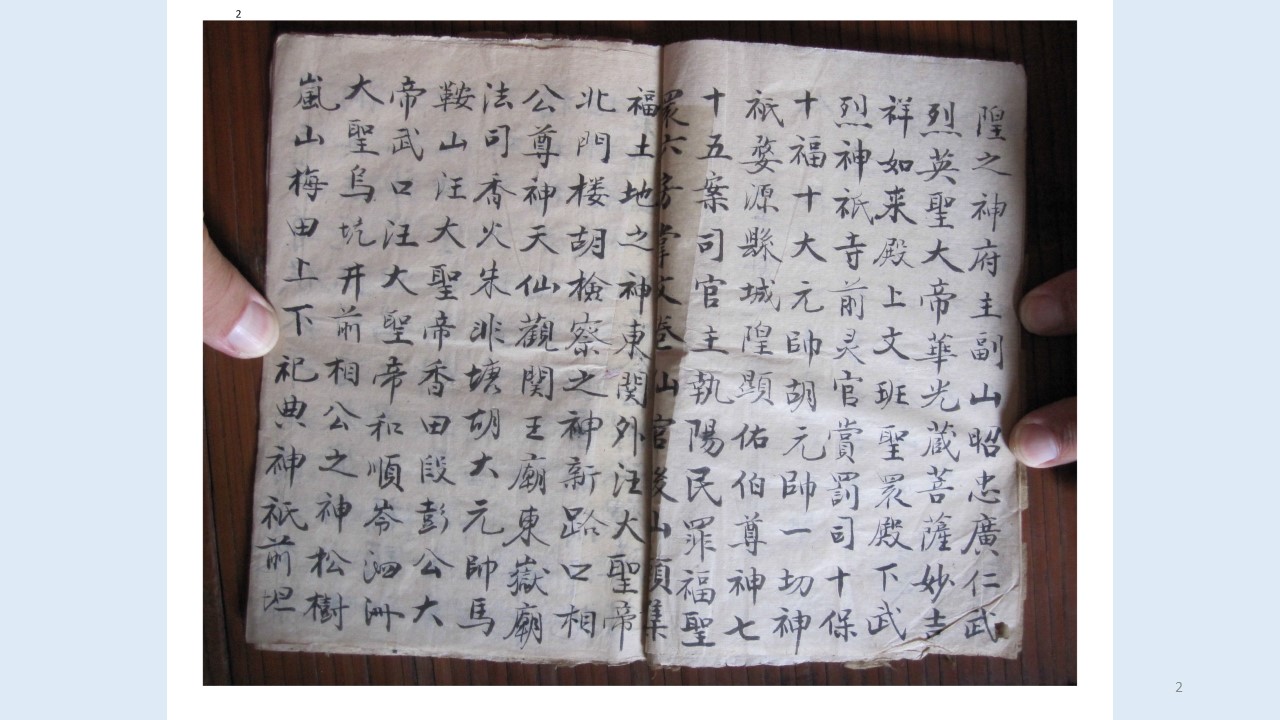 2
隍之神府主副山昭忠廣仁武
烈英聖大帝華光蔵菩薩妙吉
祥如来殿上文班聖眾殿下武
烈神祇寺前灵官賞罰司十保
十福十大元帥胡元帥一切神
祇婺源縣城隍顯佑伯尊神七
十五案司官主執陽民罪福聖
眾六房掌文卷山官後山項集
福土地之神東関外汪大聖帝
北門楼胡檢察之神新路口相
公尊神天仙觀関王廟東嶽廟
法司香火朱非塘胡大元帥馬
鞍山汪大聖帝香田段彭公大
帝武口汪大聖帝和順岺泗洲
大聖烏坑井前相公之神松樹
嵐山梅田上下祀典神祇前坦
2